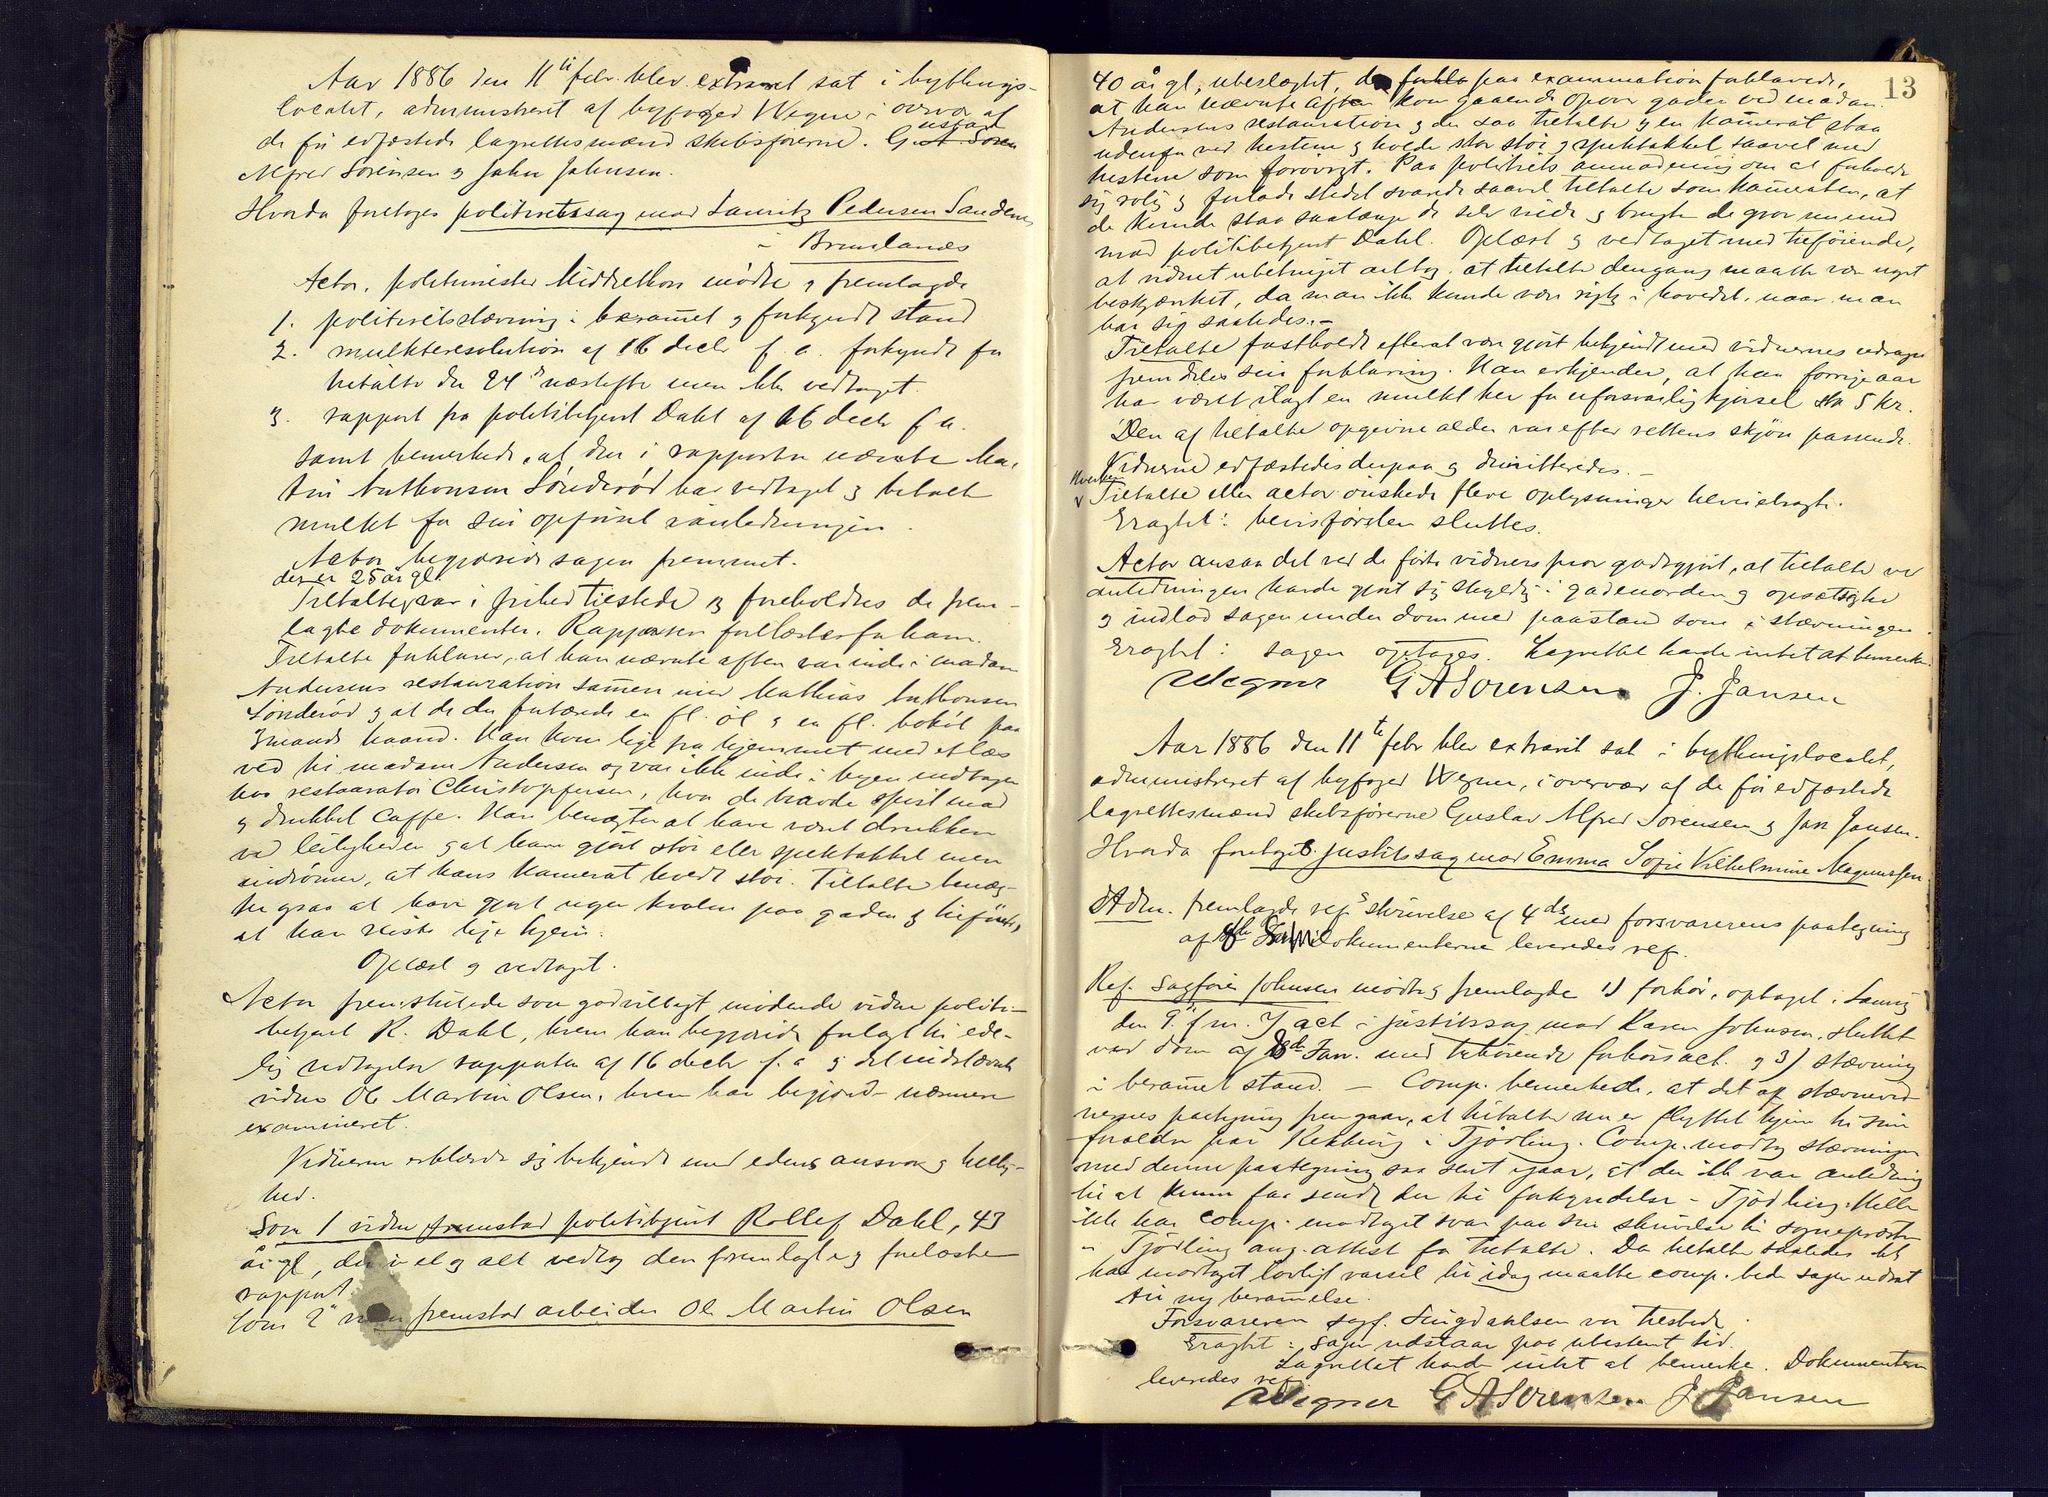 Aar 1886 den 11te febr. blev extraret sat i bythings-
localet, administreret af byfoged Wegner i overvær af
de før edfæstede lagrettesmænd skibsførerne G. ustav
Alfred Sörensen og John Johnsen.
Hvorda foretoges politiretssag mod Lauritz Pedersen Sandene
i Brunlanæs
Actor, politimester Middelthon mödte og fremlagde
1. politiretsstævning i berammet og forkyndt stand
2. mulkteresolution af 16 decbr f. a. forkyndt for
tiltalte den 24de næstefter men ikke vedtaget.
3. rapport fra politibetjent Dahl af 16 decbr f. a.
samt bemerkede, at den i rapporten nævnte Ma-
thias Anthonsen Sönderöd har vedtaget og betalt
mulkt for sin opförsel i anledningen.
Actor begjærede sagen fremmet.
der er 25 år gl.
Tiltalte var i frihed tilstede og foreholdtes de frem-
lagte dokumenter. Rapporten forelæstes for ham.
Tiltalte forklarer, at han nævnte aften var inde i madam
Andersens restauration sammen med Mathias Anthonsen
Sönderöd og at de der fortærede en fl. öl og en fl. bokøl paa
3 mands haand. Han kom lige fra hjemmet med et læs
ved til madam Andersen og var ikke inde i byen undtagen
hos restauratör Christophersen, hvor de havde spist mad
og drukket caffe. Han benægter at have været drukken
ved leiligheden og at have gjort stöi eller spektakkel men
indrömmer, at hans kamerat holdt stöi. Tiltalte benæg-
ter ogsaa at have gjort nogen kvalm paa gaden og tilföier,
at han reiste lige hjem.
Oplæst og vedtaget.
Actor fremstillede som godvilligt mödende vidne politi-
betjent R. Dahl, hvem han begjærede forelagt til ede-
lig vedtagelse rapporten af 16 decbr f. a. og det indstævnte
vidne Ole Martin Olsen, hvem han begjærede nærmere
examineret.
Vidnerne erklærede sig bekjendt med edens ansvar og hellig-
hed.
Som 1 vidne fremstod politibetjent Rollef Dahl, 43
år gl, der i et og alt vedtog den fremlagte og forelæste
rapport.
Som 2det vidne fremstod arbeider Ole Martin Olsen
13
40 år gl, ubeslægtet, der paa examination forklarede,
at han nævnte aften kom gaaende opover gaden ved madam
Andersens restauration og der saa tiltalte og en kamerat staa
udenfor ved hestene og holde stor stöi og spektakkel saavel med
hestene som forövrigt. Paa politiets anmodning om at forholde
sig rolig og forlade stedet svarede saavel tiltalte som kameraten, at
de kunde staa saalænge de selv vilde og brugte de grov mund
mod politibetjent Dahl. Oplæst og vedtaget med tilföiende,
at vidnet ubetinget antog, at tiltalte dengang maatte være noget
beskjænket, da man ikke kunde være rigtig i hovedet, naar man
bar sig saaledes. –
Tiltalte fastholdt efter at være gjort bekjendt med vidnernes udsagn
fremdeles sin forklaring. Han erkjender, at han forrige aar
har været ilagt en mulkt her for uforsvarlig kjørsel stor 5 kr.
Den af tiltalte opgivne alder var efter rettens skjön passende.
Vidnerne edfæstedes derpaa og dimitteredes. –
Hverken
Tiltalte eller actor önskede flere oplysninger tilveiebragte.
Eragtet: bevisførslen sluttes.
Actor ansaa det ved de förte vidners prov godtgjort, at tiltalte ved
anledningen havde gjort sig skyldig i gadeuorden og opsætsighed
og indlod sagen under dom med paastand som i stævningen.
Eragtet: sagen optages. Lagrettet havde intet at bemerke.
Wegner G A Sörensen J. Jansen
Aar 1886 den 11te febr blev extraret sat i bythingslocalet,
administreret af byfoged Wegner, i overvær af de för edfæstede
lagrettesmænd skibsförerne Gustav Alfred Sörensen og Jan Jansen.
Hvorda foretoges justitssag mod Emma Sofie Vilhelmine Magnussen
Adm. fremlagde ref.s skrivelse af 4de med forsvarerens paategning
af 8de Dokumenterne leveredes ref.
Ref. sagförer Johnsen mödte og fremlagde 1) forhör, optaget i Laurvig
den 9. f. m. 2) act i justitssag mod Karen Johnsen, sluttet
ved dom af 8de Jan. med tilhörende forhörsact. og 3) stævning
i berammet stand. – Comp. bemerkede, at det af stævnevid-
nernes paategning fremgaar, at tiltalte nu er flyttet hjem til sine
forældre paa Rekking i Tjölling. Comp. modtog stævningen
med denne paategning saa sent igaar, at der ikke var anledning
til at kunne faa sendt den til forkyndelse i Tjödling. Heller
ikke har comp. modtaget svar paa sin skrivelse til sognepresten
i Tjödling ang. attest for tiltalte. Da tiltalte saaledes ikke
har modtaget lovligt varsel til idag maatte comp. bede sagen udsat
til ny berammelse.
Forsvareren sagf. Lingdahlsen var tilstede.
Eragtet: sagen udstaar paa ubestemt tid.
Lagrettet havde intet at bemerke. Dokumenterne
leveredes ref.
Wegner G A Sörensen J. Jansen